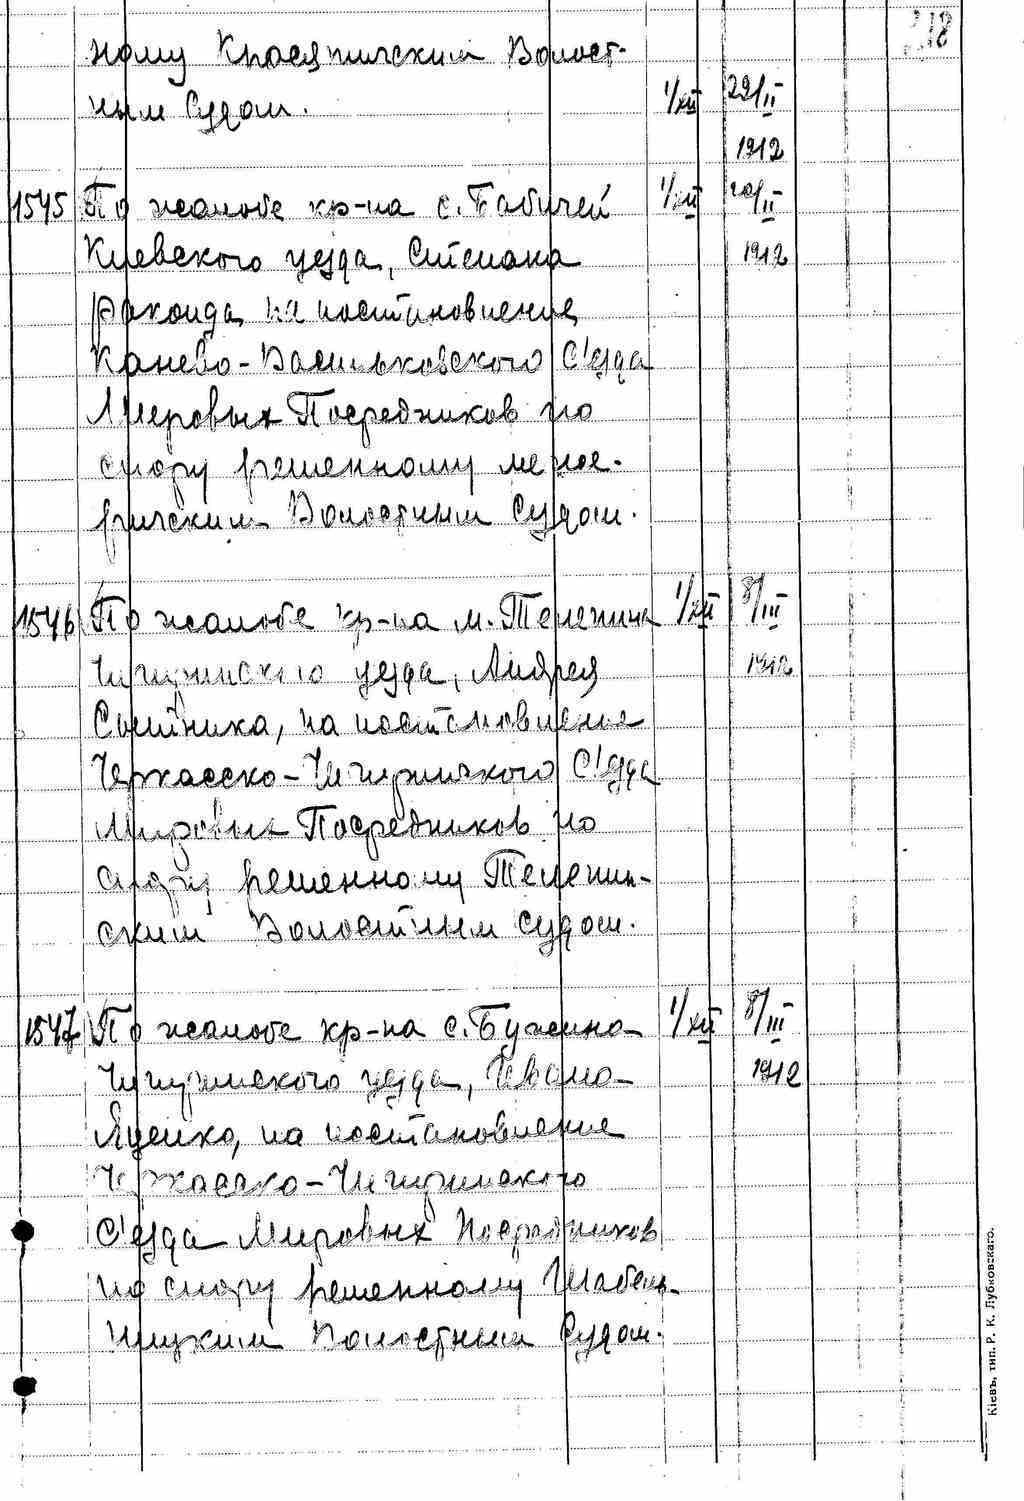 218
ному Красятичским Волост-
ным Судом. 1/XII 29/II
1912
1545 По жалобе кр-на с. Бабичей 1/XII 20/II
Киевского уезда, Степана 1912
на постановление
Канево-Васильковского С'езда
Мировых Посредников по
спору решенному меже-
ричским Волостным Судом.
1546 По жалобе кр-на м. Телепина 1/XII 8/III
Чигиринского уезда, Андрея 1912
Сытника, на постановление
Черкасско-Чигиринского С'езда
Мировых Посредников по
спору решенному Телепин-
ским Волостным судом.
1547 По жалобе кр-на с. Бужина 1/XII 8/III
Чигиринского уезда, Ивана 1912
Яценко, на постановление
Черкасско-Чигиринского
С'езда Мировых Посредников
по спору решенному Шабель-
ницким Волостным Судом.
Кіевъ, тип. Р. К. Лубковскаго.